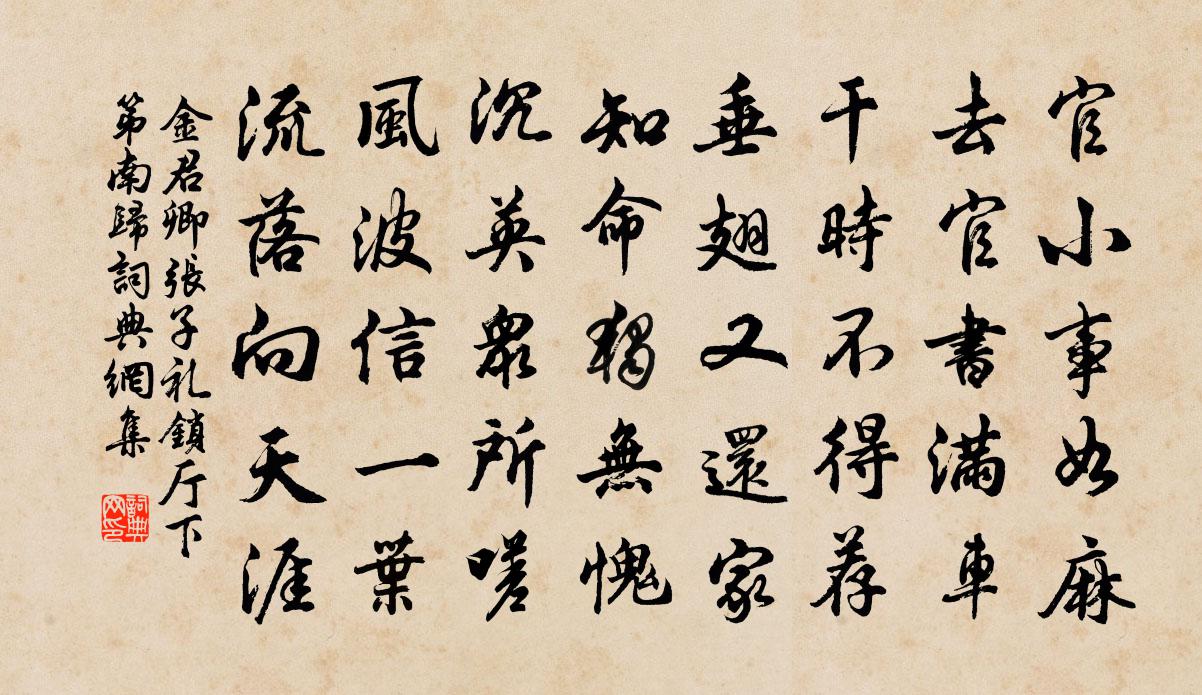 官小事如麻
去官書满車
干時不得荐
垂翅又還家
知命獨無愧
沉英衆所嗟
風波信一葉
流落向天涯
金君卿張子礼鎖厅下
第南歸詞典網集
詞典
网印